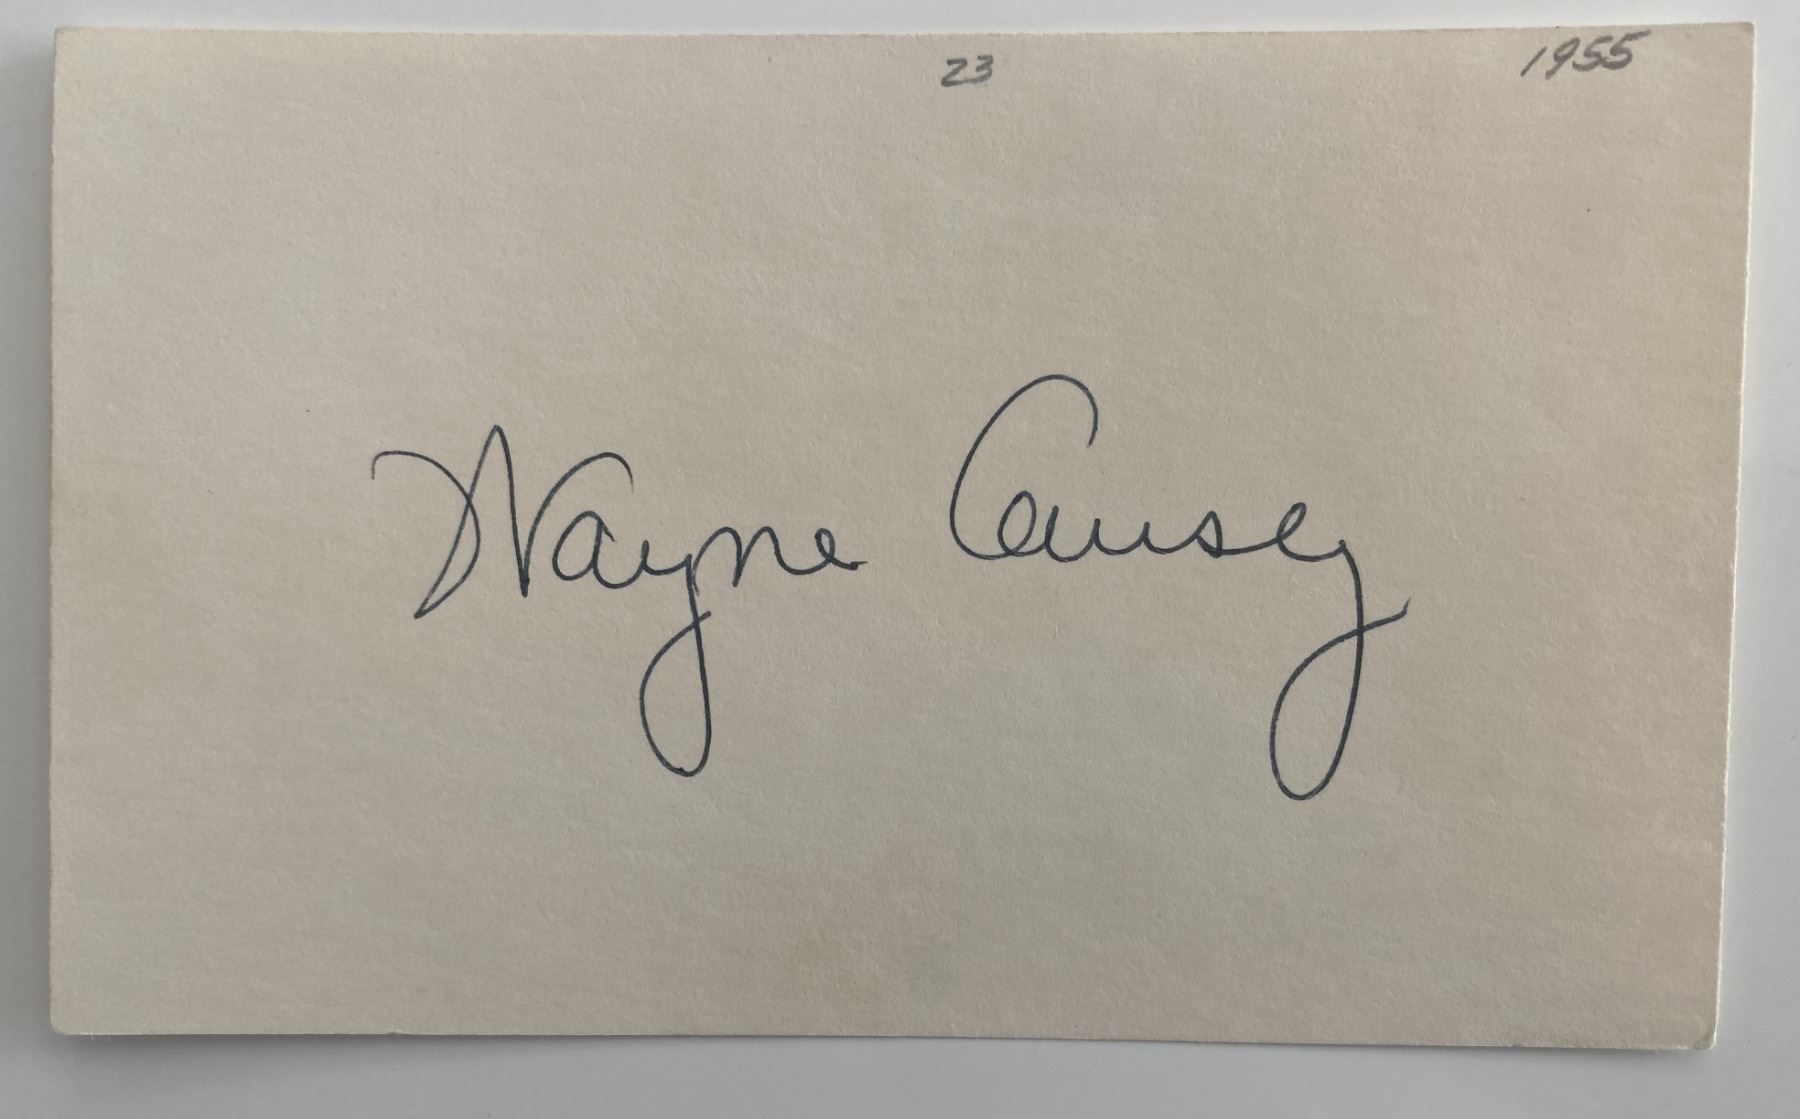 23 1955
Wayne Causey